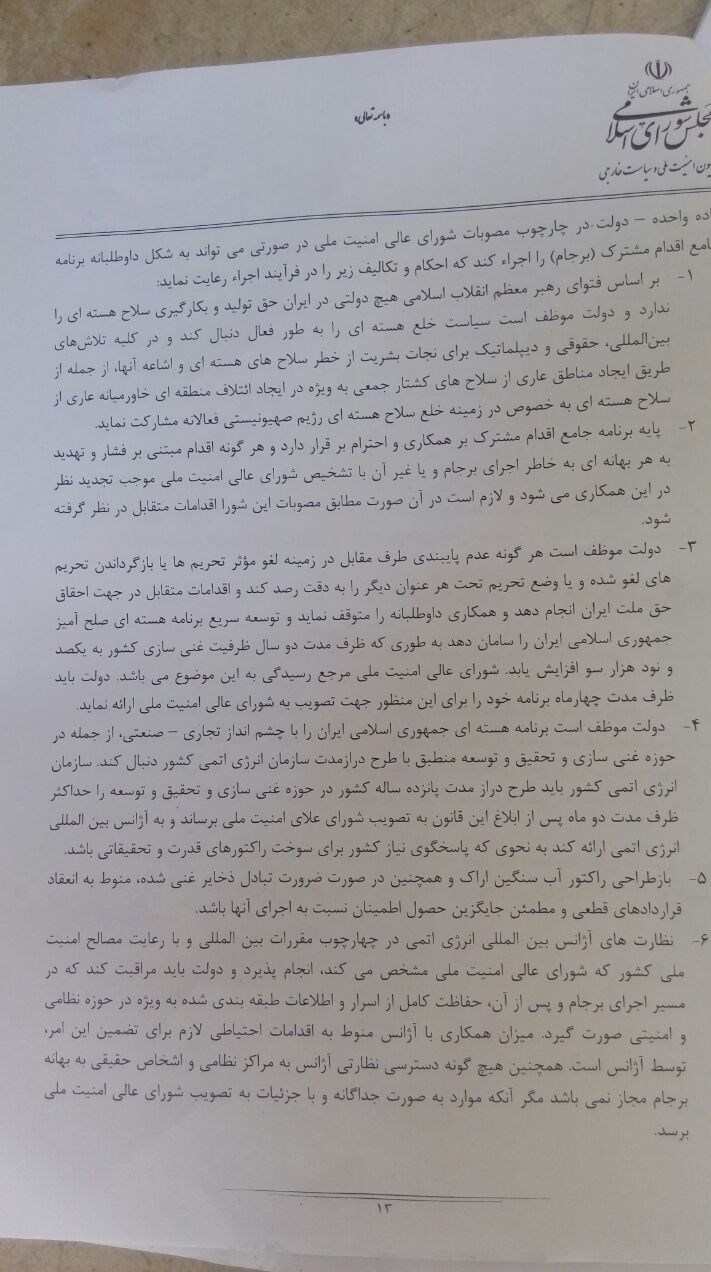 جمهوری اسلامی ایران
مجلس شورای اسلامی
امنیت ملی و سیاست خارجی
«باسمه تعالی»
ماده واحده – دولت در چارچوب مصوبات شورای عالی امنیت ملی در صورتی می تواند به شکل داوطلبانه برنامه
جامع اقدام مشترک (برجام) را اجراء کند که احکام و تکالیف زیر را در فرآیند اجراء رعایت نماید:
۱- بر اساس فتوای رهبر معظم انقلاب اسلامی هیچ دولتی در ایران حق تولید و بکارگیری سلاح هسته ای را
ندارد و دولت موظف است سیاست خلع هسته ای را به طور فعال دنبال کند و در کلیه تلاش‌های
بین‌المللی، حقوقی و دیپلماتیک برای نجات بشریت از خطر سلاح های هسته ای و اشاعه آنها، از جمله از
طریق ایجاد مناطق عاری از سلاح های کشتار جمعی به ویژه در ایجاد ائتلاف منطقه ای خاورمیانه عاری از
سلاح هسته ای به خصوص در زمینه خلع سلاح هسته ای رژیم صهیونیستی فعالانه مشارکت نماید.
۲- پایه برنامه جامع اقدام مشترک بر همکاری و احترام بر قرار دارد و هر گونه اقدام مبتنی بر فشار و تهدید
به هر بهانه ای به خاطر اجرای برجام و یا غیر آن با تشخیص شورای عالی امنیت ملی موجب تجدید نظر
در این همکاری می شود و لازم است در آن صورت مطابق مصوبات این شورا اقدامات متقابل در نظر گرفته
شود.
۳- دولت موظف است هر گونه عدم پایبندی طرف مقابل در زمینه لغو مؤثر تحریم ها یا بازگرداندن تحریم
های لغو شده و یا وضع تحریم تحت هر عنوان دیگر را به دقت رصد کند و اقدامات متقابل در جهت احقاق
حق ملت ایران انجام دهد و همکاری داوطلبانه را متوقف نماید و توسعه سریع برنامه هسته ای صلح آمیز
جمهوری اسلامی ایران را سامان دهد به طوری که ظرف مدت دو سال ظرفیت غنی سازی کشور به یکصد
و نود هزار سو افزایش یابد. شورای عالی امنیت ملی مرجع رسیدگی به این موضوع می باشد. دولت باید
ظرف مدت چهارماه برنامه خود را برای این منظور جهت تصویب به شورای عالی امنیت ملی ارائه نماید.
۴- دولت موظف است برنامه هسته ای جمهوری اسلامی ایران را با چشم انداز تجاری – صنعتی، از جمله در
حوزه غنی سازی و تحقیق و توسعه منطبق با طرح درازمدت سازمان انرژی اتمی کشور دنبال کند. سازمان
انرژی اتمی کشور باید طرح دراز مدت پانزده ساله کشور در حوزه غنی سازی و تحقیق و توسعه را حداکثر
ظرف مدت دو ماه پس از ابلاغ این قانون به تصویب شورای علای امنیت ملی برساند و به آژانس بین المللی
انرژی اتمی ارائه کند به نحوی که پاسخگوی نیاز کشور برای سوخت راکتورهای قدرت و تحقیقاتی باشد.
۵- بازطراحی راکتور آب سنگین اراک و همچنین در صورت ضرورت تبادل ذخایر غنی شده، منوط به انعقاد
قراردادهای قطعی و مطمئن جایگزین حصول اطمینان نسبت به اجرای آنها باشد.
۶- نظارت های آژانس بین المللی انرژی اتمی در چهارچوب مقررات بین المللی و با رعایت مصالح امنیت
ملی کشور که شورای عالی امنیت ملی مشخص می کند، انجام پذیرد و دولت باید مراقبت کند که در
مسیر اجرای برجام و پس از آن، حفاظت کامل از اسرار و اطلاعات طبقه بندی شده به ویژه در حوزه نظامی
و امنیتی صورت گیرد. میزان همکاری با آژانس منوط به اقدامات احتیاطی لازم برای تضمین این امر،
توسط آژانس است. همچنین هیچ گونه دسترسی نظارتی آژانس به مراکز نظامی و اشخاص حقیقی به بهانه
برجام مجاز نمی باشد مگر آنکه موارد به صورت جداگانه و با جزئیات به تصویب شورای عالی امنیت ملی
برسد.
۱۳